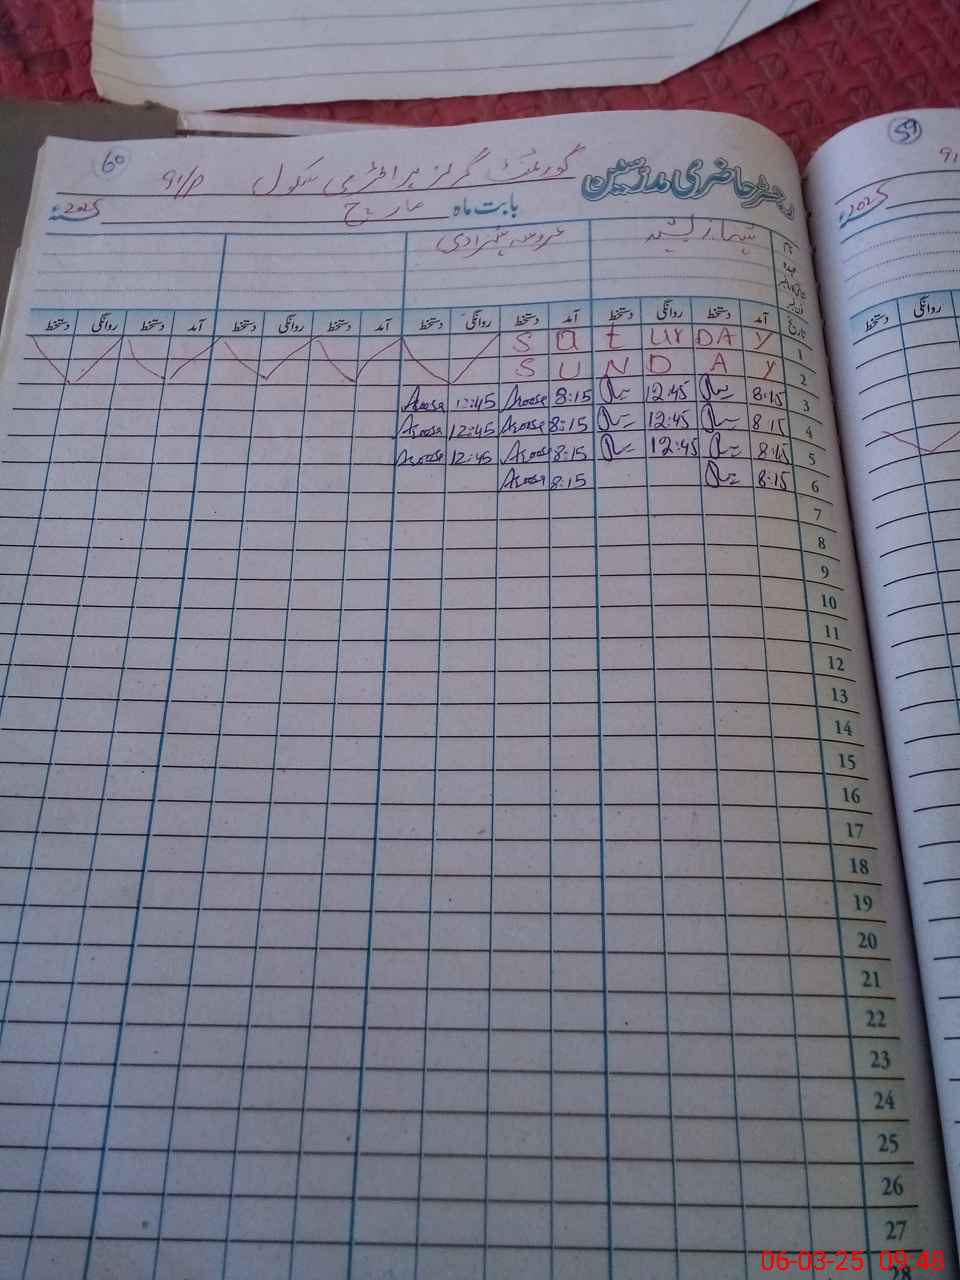 60
رجسٹر حاضری مدرسین گورنمنٹ گرلز پرائمری سکول 91/P
بابت ماہ مارچ 2025ء
عروسہ شہزادی
آمد دستخط روانگی دستخط آمد دستخط روانگی دستخط آمد دستخط روانگی دستخط آمد دستخط روانگی دستخط
S a t ur DA y 1
S U N D A y 2
Aroosa 12:45 Aroosa 8:15 12:45 8:15 3
Aroosa 12:45 Aroosa 8:15 12:45 8:15 4
Aroosa 12:45 Aroosa 8:15 12:45 8:15 5
Aroosa 8:15 8:15 6
7
8
9
10
11
12
13
14
15
16
17
18
19
20
21
22
23
24
25
26
27
28
59
2025ء
روانگی دستخط
06-03-25 09:48